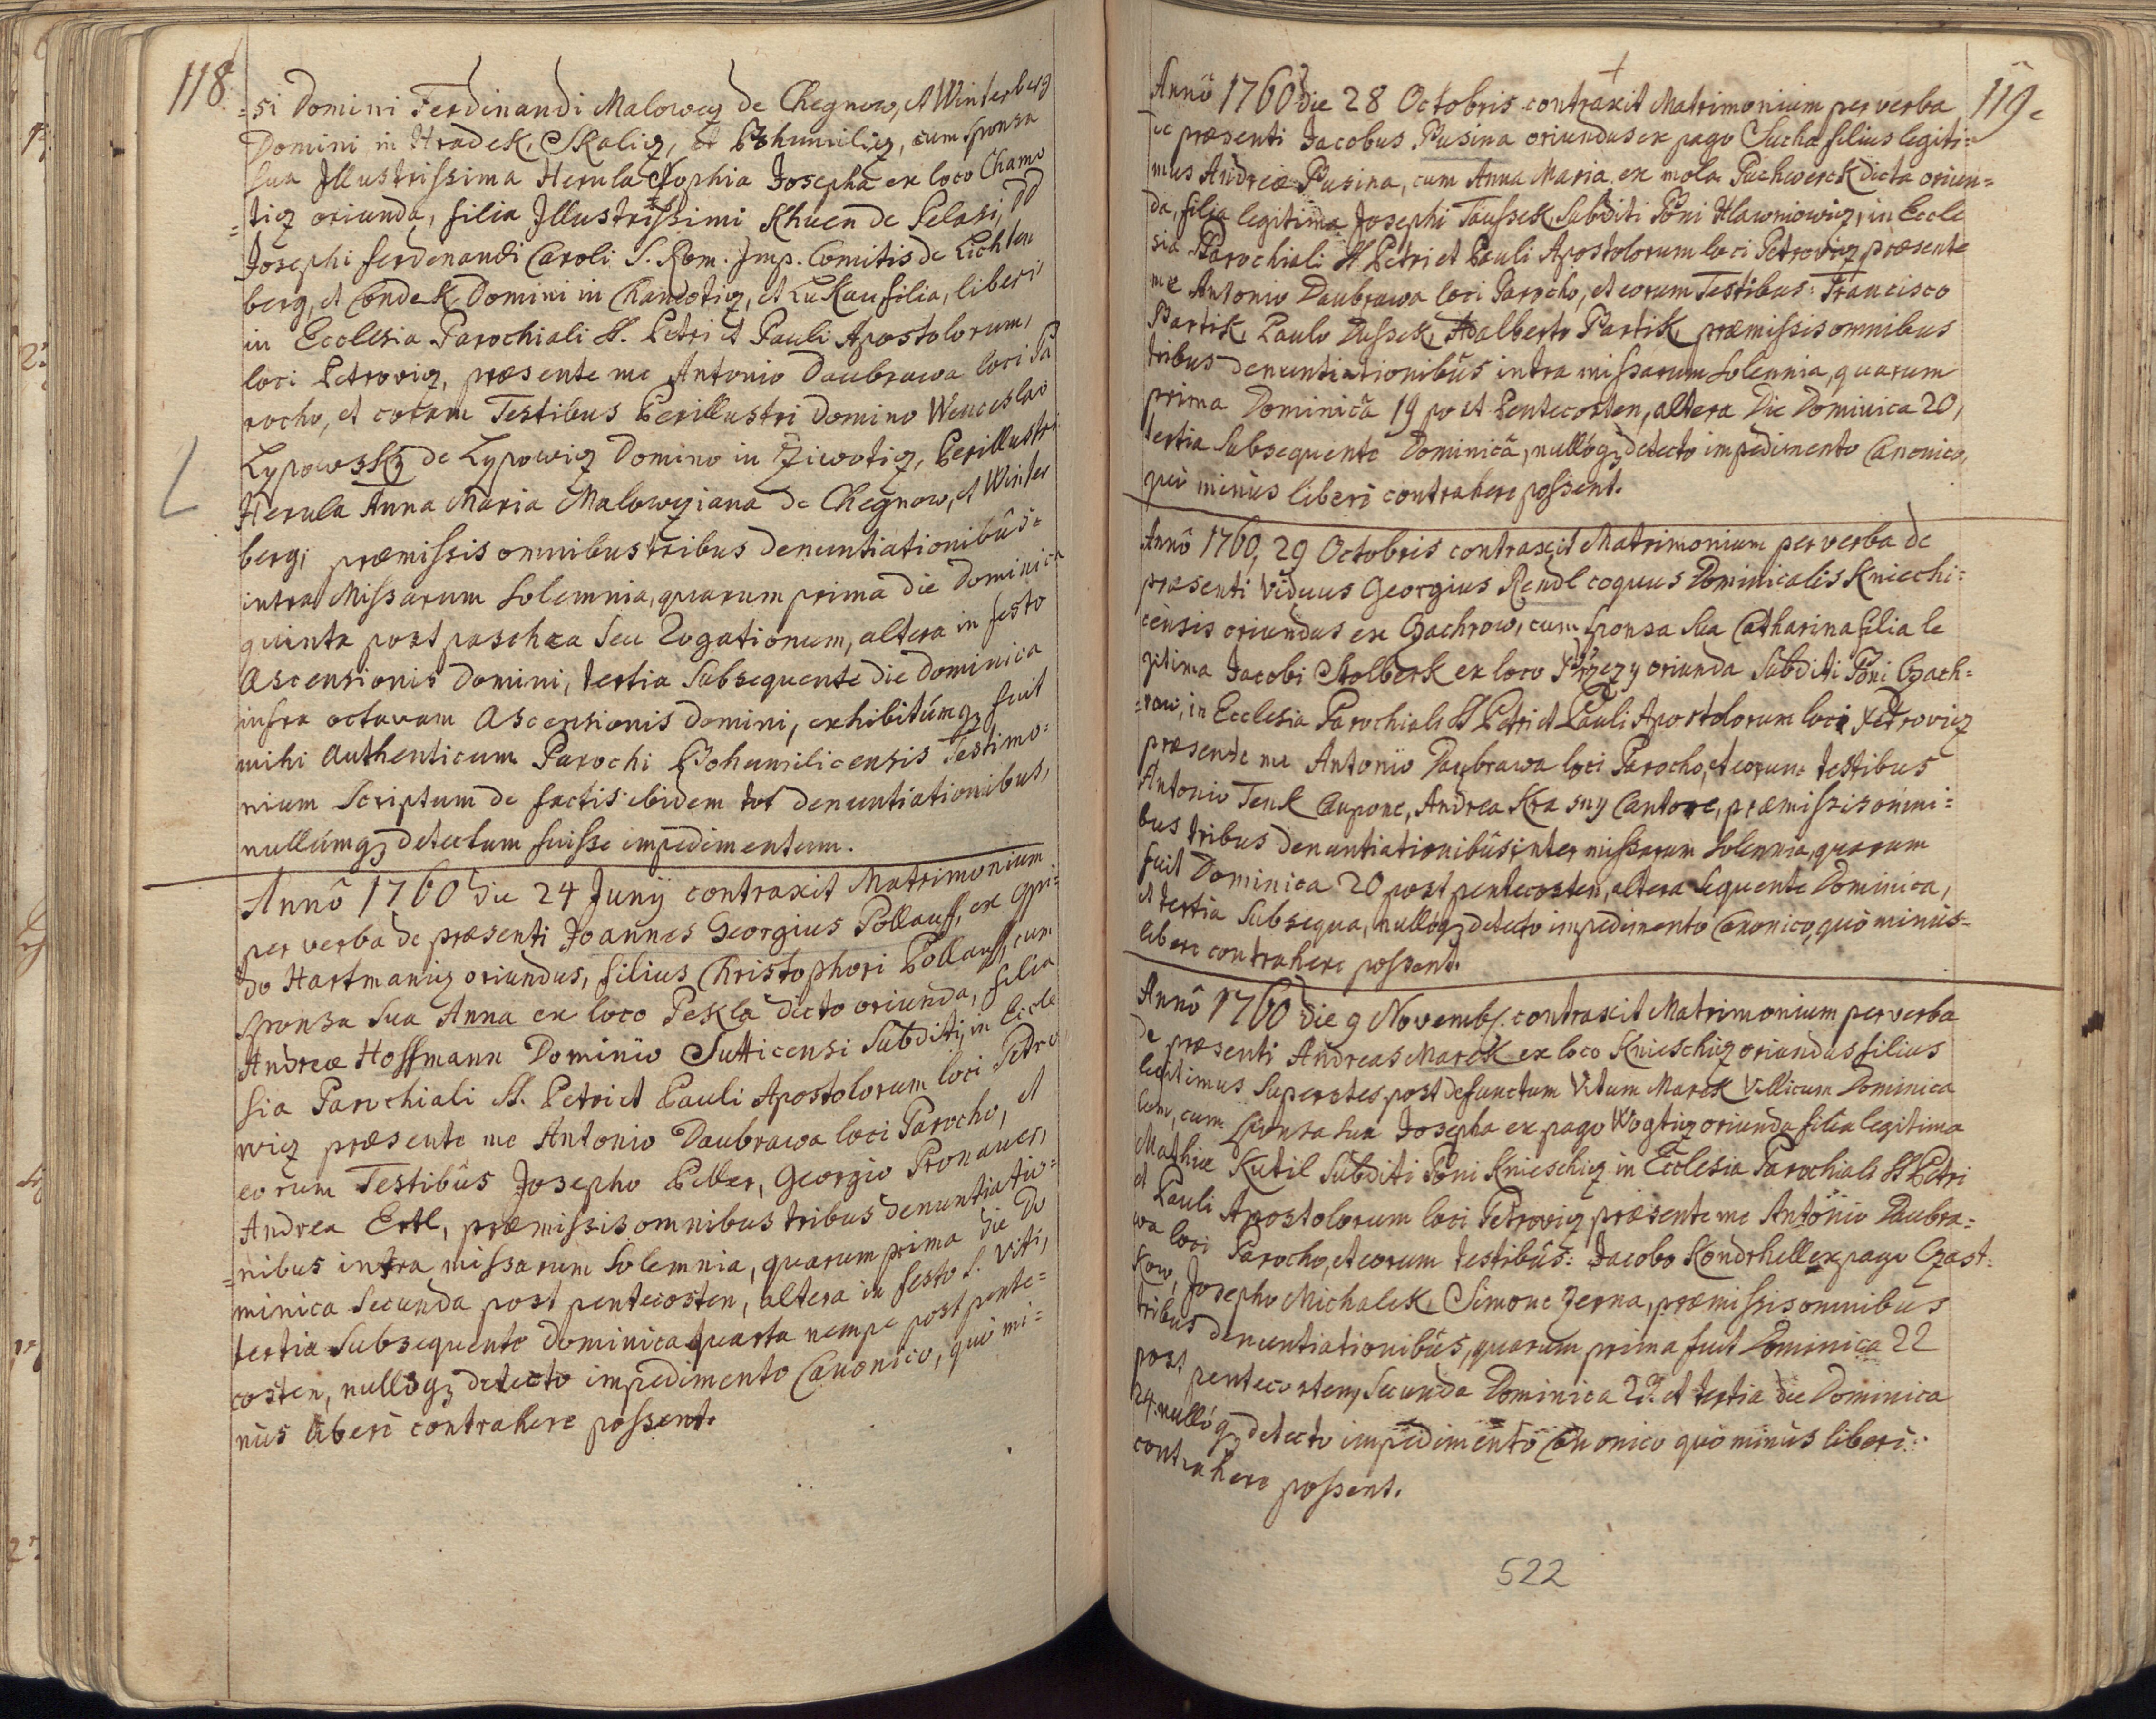 118
=si Domini Ferdinandi Malowecz de Chegnow, et Winterberg
Domini in Hradek, Skalicz, et Bohumilicz, cum Sponsa
sua Illustrissima Herula Sophia Josepha ex loco Chamo
=ticz oriunda, filia Illustrissimi Khuen de Belasi, DD
Josephi Ferdenandi Caroli S. Rom. Imp. Comitis de Lichten
berg, et Condek, Domini in Chamotiz, et Lukau filia, liberi
in Ecclesia Parochiali SS. Petri et Pauli Apostolorum,
loci Petrovicz, præsente me Antonio Daubrawa loci Pa
rocho, et coram Testibus Perillustri Domino Wenceslao
Lypowsky de Lypowicz Domino in Ziwoticz, Perillustri
Herula Anna Maria Malowcziana de Chegnow, et Winter
berg, præmissis omnibus tribus denuntiationibûs=
intra Missarum Solemnia, quarum prima die Dominica
quinta post pascha seu Rogationum, altera in festo
Ascensionis Domini, tertia Subsequente die Dominica
infra octavam Ascensionis Domini, exhibitúmq3 fuit
mihi Authenticum Parochi Bohumilicensis Testimo=
nium Scriptum de factis ibidem tot denuntiationibus,
nullúmq3 detectum fuisse impedimentum.
Annô 1760 die 24 Junij contraxit Matrimonium
per verba de præsenti Joannes Georgius Pollauf, ex opi=
do Hartmanicz oriundus, filius Christophori Pollauf, cum
sponsa sua Anna ex loco Pekla dicto oriunda, filia
Andreæ Hoffmann Dominio Sutticensi Subditi, in Eccle
sia Parochiali SS. Petri et Pauli Apostolorum loci Petro
wicz præsente me Antonio Daubrawa loci Parocho, et
eorum Testibûs Josepho Peller, Georgio Pronawer,
Andrea Ertl, præmissis omnibus tribus denuntiatio=
=nibus intra missarum Solemnia, quarum prima die Do
minica Secunda post pentecosten, altera in festo S. Viti,
tertia Subsequente Dominica quarta nempe post pente=
costen, nullóq3 detecto impedimento Canonico, quò mi=
nùs liberè contrahere possent.
119.
Annô 1760 die 28 Octobris contraxit Matrimonium per verba
de præsenti Jacobus Pusina oriundus ex pago Sucha filius legiti=
mus Andreæ Pusina, cum Anna Maria ex mola Puchwerck dicta oriun=
da, filia legitima Josephi Taussek Subditi Dōni Hlawniowicz, in Eccle
sia Parochiali SS Petri et Pauli Apostolorum loci Petrovicz præsente
me Antonio Daubrawa loci Parocho, et eorum Testibus: Francisco
Partik, Paulo Dussek, Adalberto Partik præmissis omnibus
tribus denuntiationibûs intra missarum Solennia, quarum
prima Dominicâ 19 post Pentecosten, altera Die Dominica 20,
tertia Subsequente Dominicâ, nullóq3 detecto impedimento Canonico,
quò minùs liberè contrahere possent.
Annô 1760, 29 Octobris contraxit Matrimonium per verba de
præsenti viduus Georgius Rendl coquus Dominicalis Kniechi=
censis oriundus ex Czachrow, cum Sponsa Sua Catharina filia le
gitima Jacobi Stolberk ex loco oriunda Subditi Dōni Czach=
=row, in Ecclesia Parochiali SS Petri et Pauli Apostolorum loci Petrovicz
præsente me Antonio Daubrawa loci Parocho, et eorum testibus
Antonio Tenk Caupone, Andrea Krasny Cantore, præmissis omni=
bus tribus denuntiationibûs inter missarum Solennia, quarum
fuit Dominica 20 post pentecosten, altera sequente Dominica,
et tertia Subsequa, nullóq3 detecto impedimento Canonico, quò minùs=
liberè contrahere possent.
Annô 1760 die 9 Novemb. contraxit Matrimonium per verba
de præsenti Andreas Marek ex loco Knieschicz oriundus filius
legitimus Superstes post defunctum Vitum Marek Villicum Dominica
lem, cum Sponsa sua Josepha ex pago Wogticz oriunda filia legitima
Mathiæ Kutil Subditi Dōni Knieschicz in Ecclesia Parochiali SS Petri
et Pauli Apostolorum loci Petrovicz præsente me Antonio Daubra=
wa loci Parocho, et eorum testibûs: Jacobo Kondrhell ex pago Czast=
kow, Josepho Michalek, Simone Zerna, præmissis omnibus
tribus denuntiationibûs, quarum prima fuit Dominica 22
post pentecosten, Secunda Dominica 23 et tertia die Dominica
24. nullóq3 detecto impedimento Canonico quò minùs liberè
contrahere possent.
522